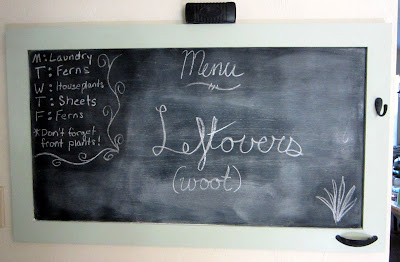 M: Laundry
T: Ferns
W: Houseplants
T: Sheets
F: Ferns
*Don't forget
front plants!
Menu
Leftovers
(woot)